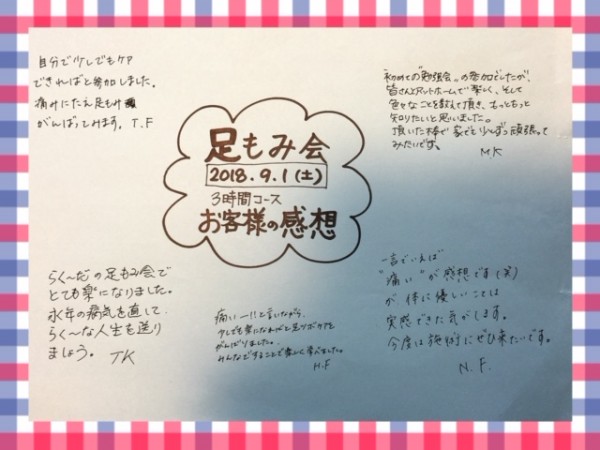 足もみ会
2018.9.1(土)
3時間コース
お客様の感想
自分で少しでもケア
できればと参加しました。
痛みにたえ足もみ
がんばってみます。 T.F
初めての"勉強会"の参加でしたが、
皆さんアットホームで楽しく、そして
色々なことを教えて頂き、もっともっと
知りたいと思いました。
頂いた棒で家でも少しずつ頑張って
みたいです。
M.K
らく〜だの足もみ会で
とても楽になりました。
永年の病気を直して、
らく〜な人生を送り
ましょう。 TK
痛いー!!と言いながら、
少しでも楽になればと足ツボケアを
がんばりました。
みんなですることで楽しく学べました。
H.F
一言でいえば
"痛い"が感想です(笑)
が体に優しいことは
実感できた気がします。
今度は施術にぜひ来たいです。
N.F.